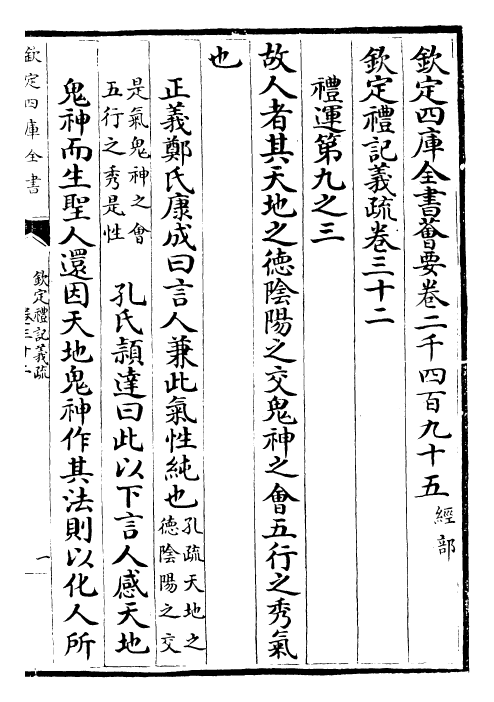 欽定四庫全書薈要卷二千四百九十五 經部
欽定禮記義疏卷三十二
禮運第九之三
故人者其天地之德陰陽之交鬼神之會五行之秀氣
也
正義鄭氏康成曰言人兼此氣性純也 孔疏天地之德陰陽之交
是氣鬼神之會五行之秀是性 孔氏頴達曰此以下言人感天地
鬼神而生聖人還因天地鬼神作其法則以化人所
欽定四庫全書
欽定禮記義疏
卷三十二
一